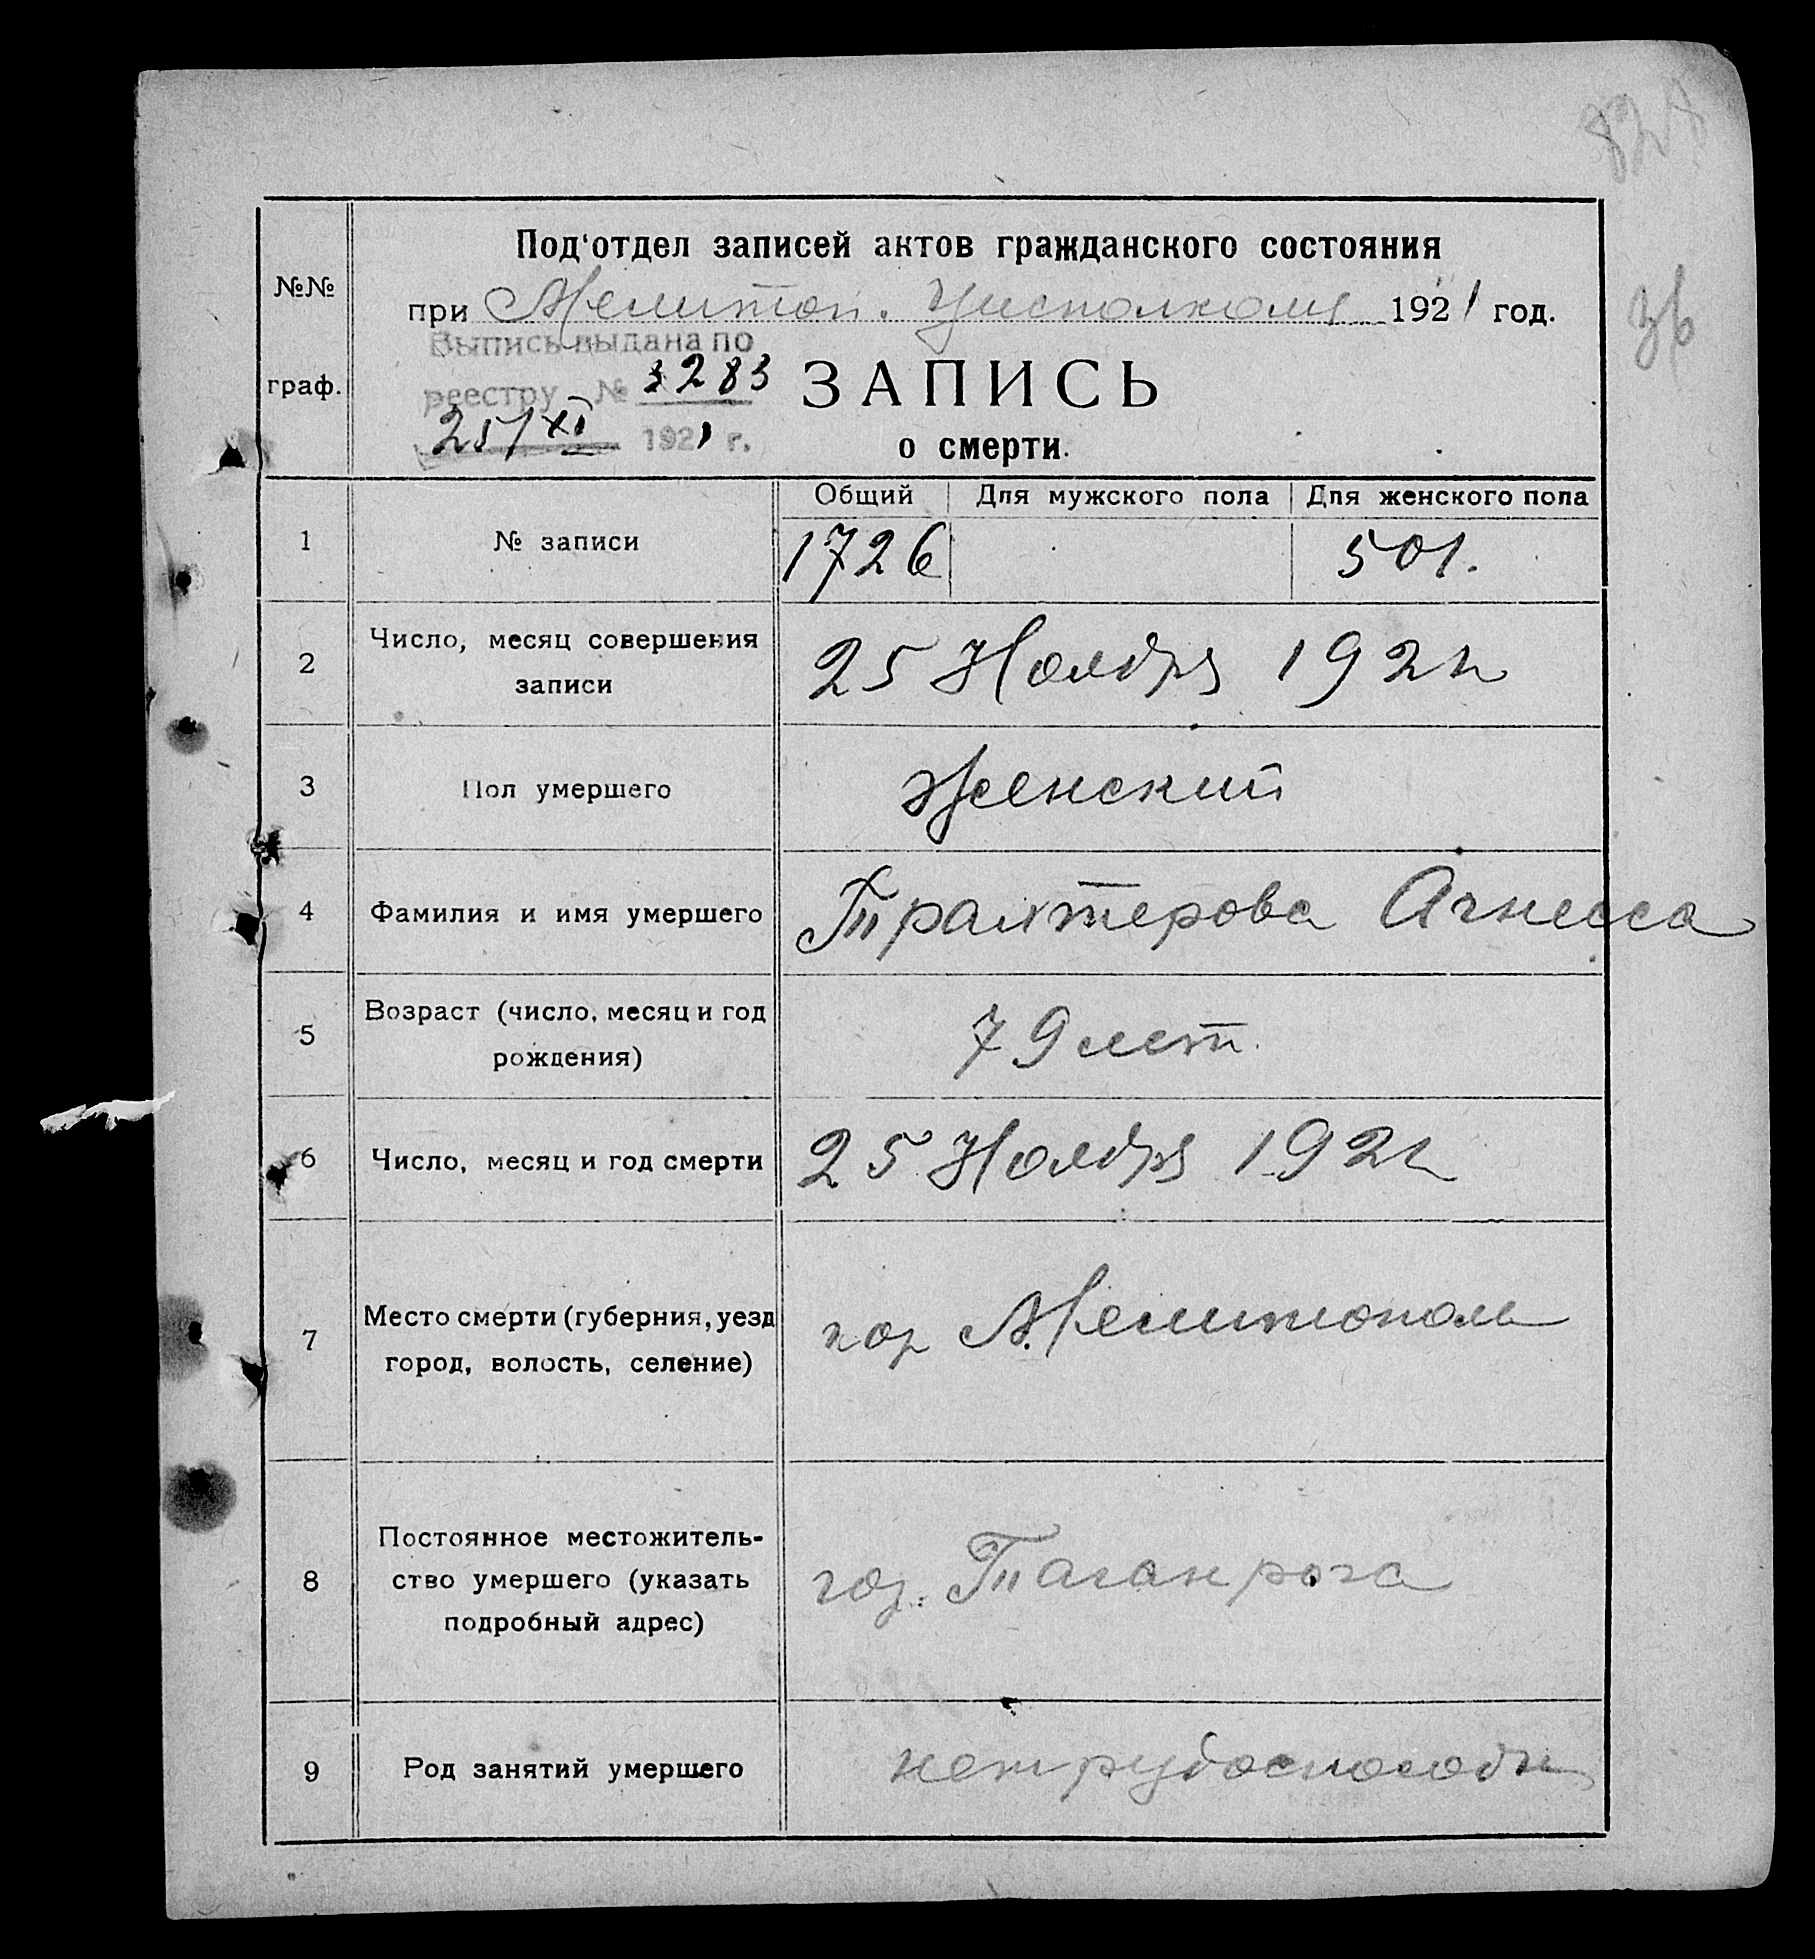 828
Под'отдел записей актов гражданского состояния
№№
при Мелитоп. Уисполкоме 1921 год.
36
Выпись выдана по
реестру № 3283
25/XI 1921 г.
граф.
ЗАПИСЬ
о смерти.
Общий Для мужского пола Для женского пола
1 № записи 1726 501.
2 Число, месяц совершения
записи
25 Ноября 1921
3 Пол умершего Женский
4 Фамилия и имя умершего Агнесса
5 Возраст (число, месяц и год
рождения)
79 лет.
6 Число, месяц и год смерти 25 Ноября 1921
7 Место смерти (губерния, уезд
город, волость, селение)
гор Мелитополь
8 Постоянное местожитель-
ство умершего (указать
подробный адрес)
гор. Таганрога
9 Род занятий умершего нетрудоспособн